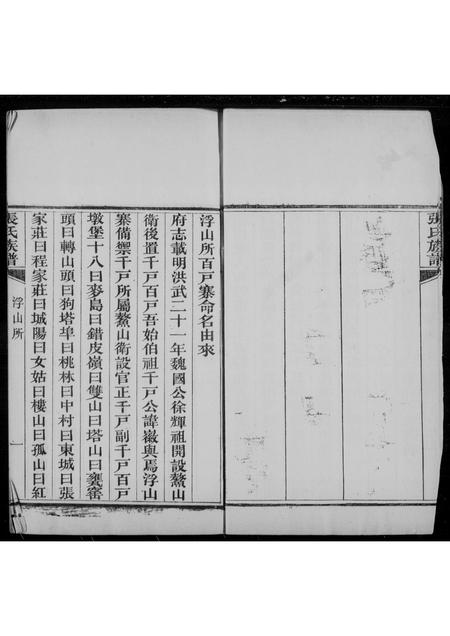 張氏族譜
浮山所百戶寨命名由來
府志載明洪武二十一年魏國公徐輝祖開設鰲山
衛後置千戶百戶吾始伯祖千戶公諱嶽與焉浮山
寨備禦千戶所屬鰲山衛設官正千戶副千戶百戶
墩堡十八曰麥島曰錯皮嶺曰雙山曰塔山曰甕窰
頭曰轉山頭曰狗塔埠曰桃林曰中村曰東城曰張
家莊曰程家莊曰城陽曰女姑曰樓山曰孤山曰紅
張氏族譜
浮山所
一